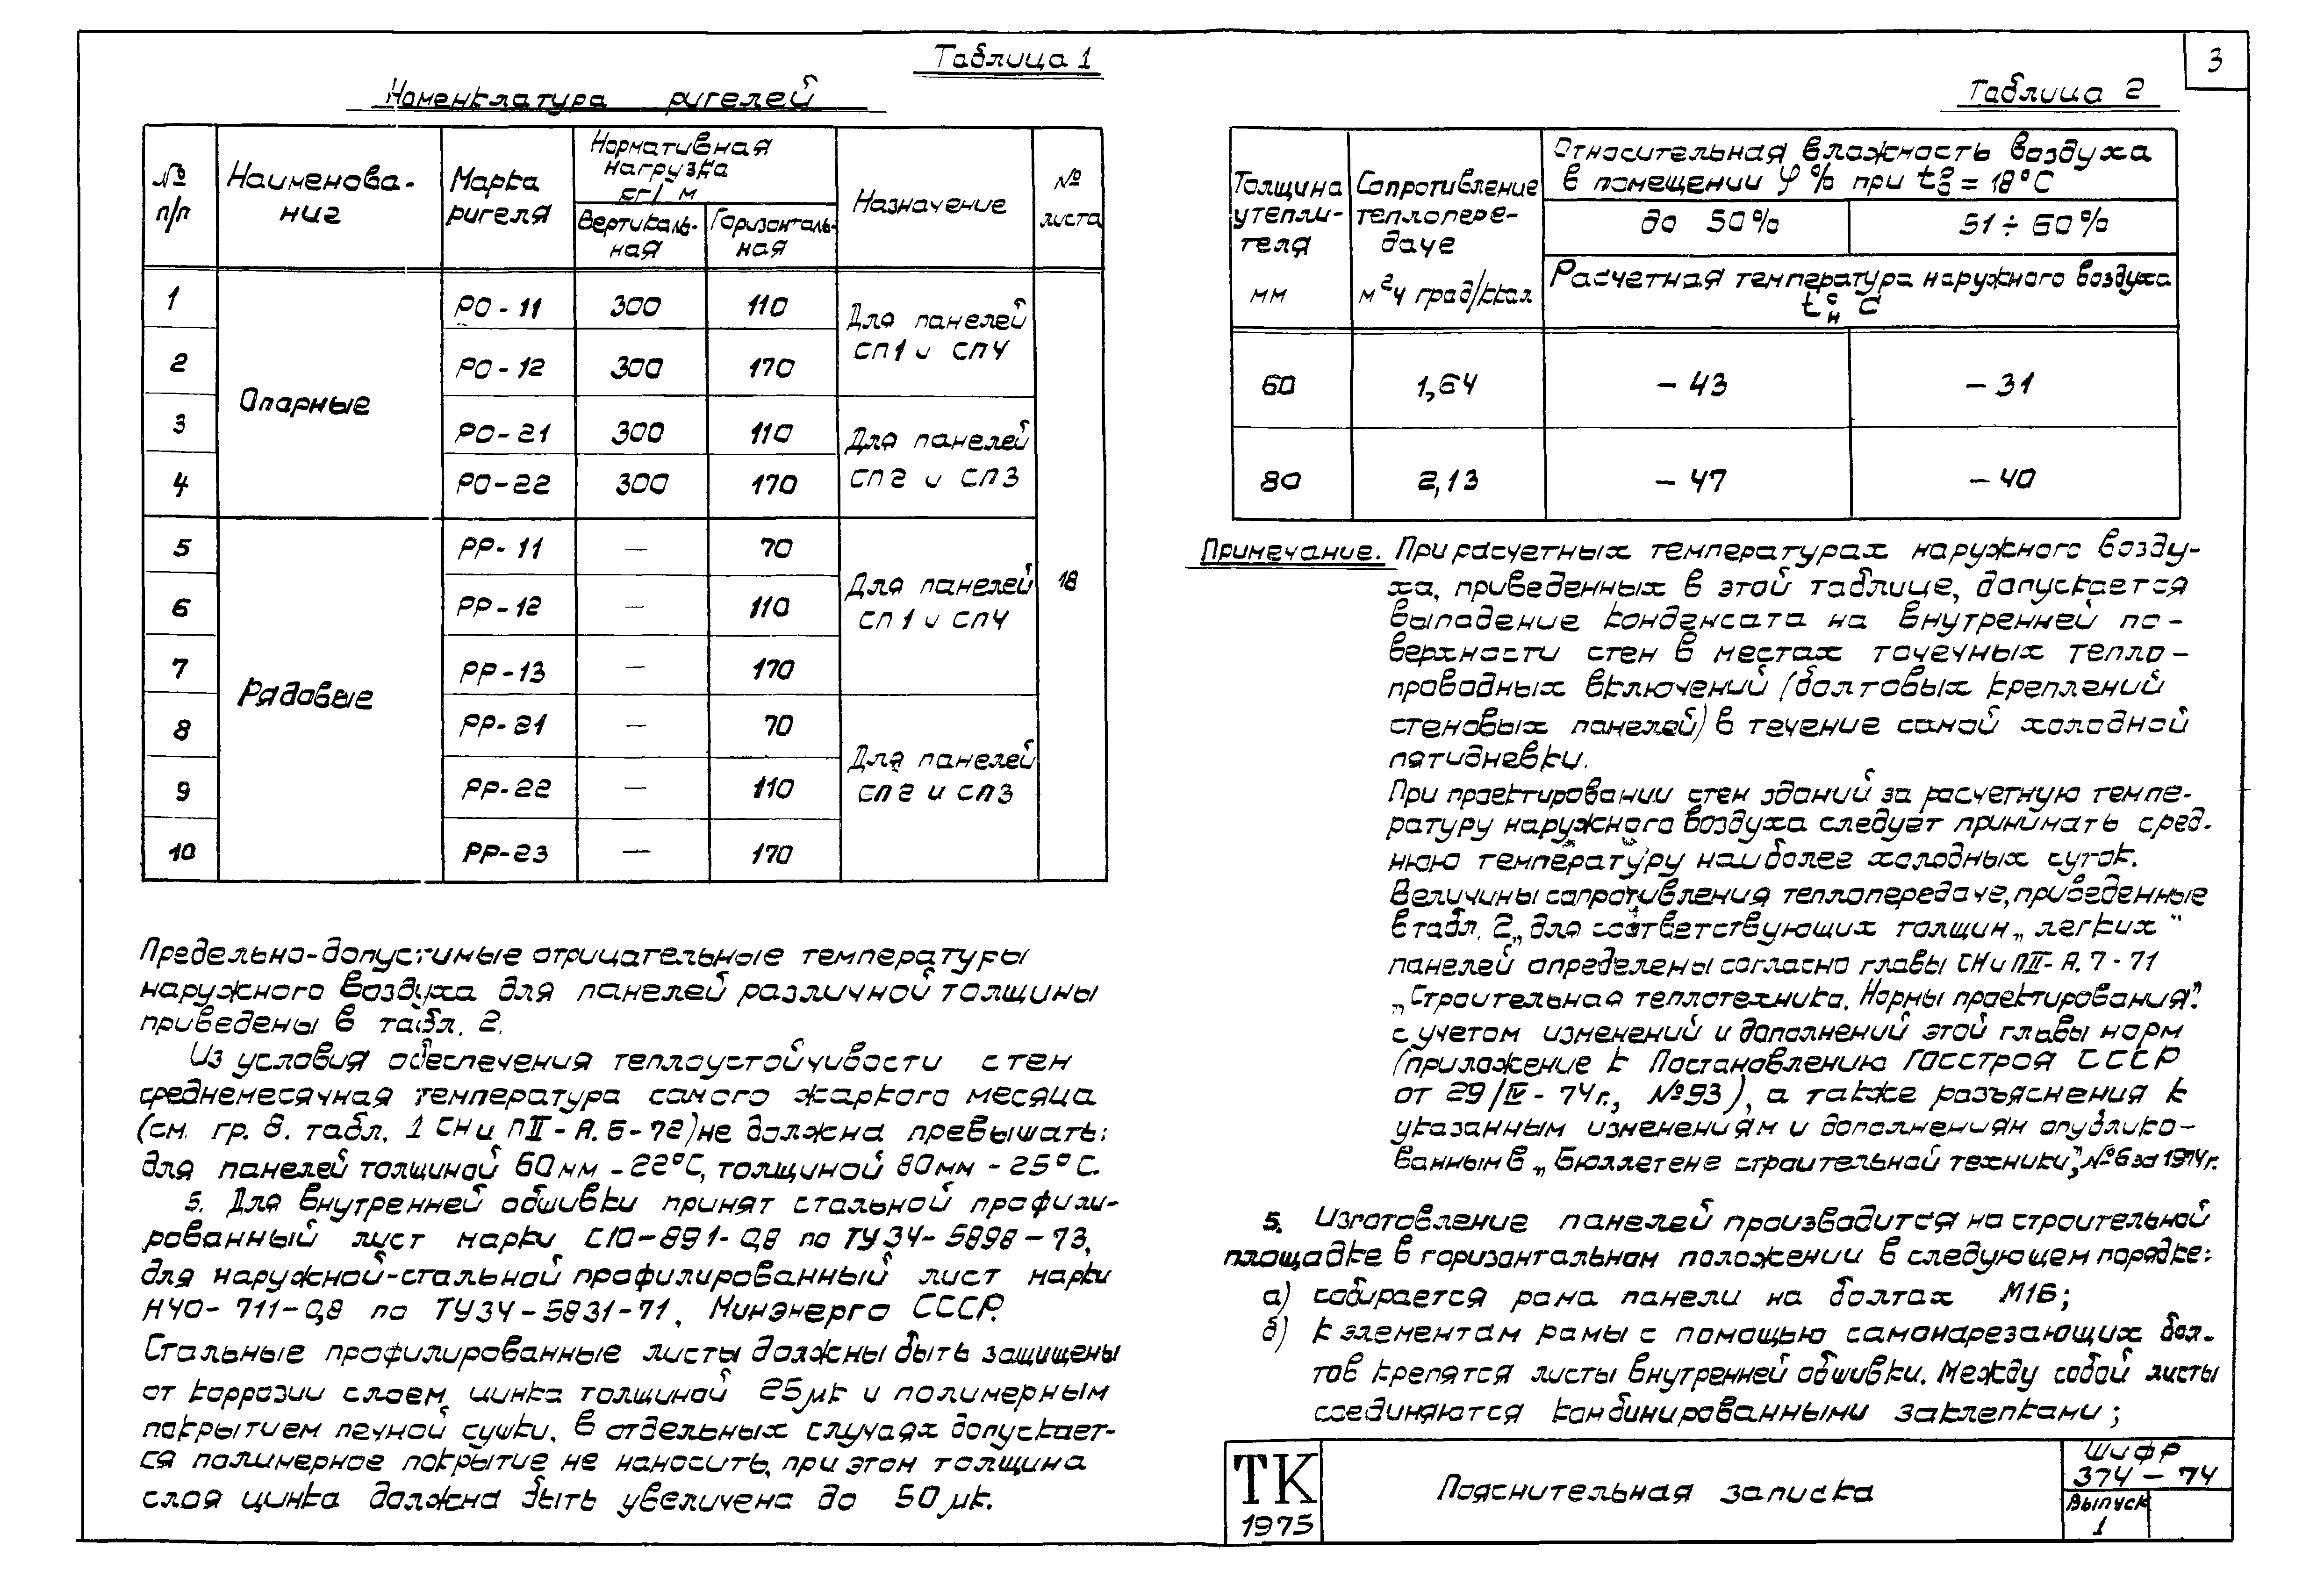 3
Таблица 1
Номенклатура ригелей
№ п/п
Наименова-
ние
Марка
ригеля
Нормативная
нагрузка
кг/м
Вертикаль-
ная
Горизонталь-
ная
Назначение
№
листа
1 РО-11 300 110
2 РО-12 300 170
Для панелей
СП1 и СП4
Опорные
3 РО-21 300 110
4 РО-22 300 170
Для панелей
СП2 и СП3
5 РР-11 — 70
6 РР-12 — 110
7 РР-13 — 170
Для панелей
СП1 и СП4
18
Рядовые
8 РР-21 — 70
9 РР-22 — 110
10 РР-23 — 170
Для панелей
СП2 и СП3
Предельно-допустимые отрицательные температуры
наружного воздуха для панелей различной толщины
приведены в табл. 2.
Из условия обеспечения теплоустойчивости стен
среднемесячная температура самого жаркого месяца
(см. гр. 8. табл. 1 СНиП II-А.6-72) не должна превышать:
для панелей толщиной 60мм - 22°С, толщиной 80мм - 25°С.
5. Для внутренней обшивки принят стальной профили-
рованный лист марки С10-891-0,8 по ТУ34-5898-73,
для наружной-стальной профилированный лист марки
Н40-711-0,8 по ТУ34-5831-71, Минэнерго СССР.
Стальные профилированные листы должны быть защищены
от коррозии слоем цинка толщиной 25мк и полимерным
покрытием печной сушки. В отдельных случаях допускает-
ся полимерное покрытие не наносить, при этом толщина
слоя цинка должна быть увеличена до 50мк.
Таблица 2
Толщина
утепли-
теля
мм
Сопротивление
теплопере-
даче
м²ч град/ккал
Относительная влажность воздуха
в помещении φ% при tв = 18°С
до 50% 51÷60%
Расчетная температура наружного воздуха
tн °С
60 1,64 -43 -31
80 2,13 -47 -40
Примечание. При расчетных температурах наружного возду-
ха, приведенных в этой таблице, допускается
выпадение конденсата на внутренней по-
верхности стен в местах точечных тепло-
проводных включений (болтовых креплений
стеновых панелей) в течение самой холодной
пятидневки.
При проектировании стен зданий за расчетную темпе-
ратуру наружного воздуха следует принимать сред-
нюю температуру наиболее холодных суток.
Величины сопротивления теплопередаче, приведенные
в табл. 2, для соответствующих толщин „легких"
панелей определены согласно главы СНиПII-А.7-71
„Строительная теплотехника. Нормы проектирования".
с учетом изменений и дополнений этой главы норм
(приложение к Постановлению Госстроя СССР
от 29/IV-74г., №93), а также разъяснения к
указанным изменениям и дополнениям опублико-
ванным в „Бюллетене строительной техники", №6 за 1974г.
5. Изготовление панелей производится на строительной
площадке в горизонтальном положении в следующем порядке:
а) собирается рама панели на болтах М16;
б) к элементам рамы с помощью самонарезающих бол-
тов крепятся листы внутренней обшивки. Между собой листы
соединяются комбинированными заклепками;
ТК
1975
Пояснительная записка
Шифр
374-74
Выпуск
1